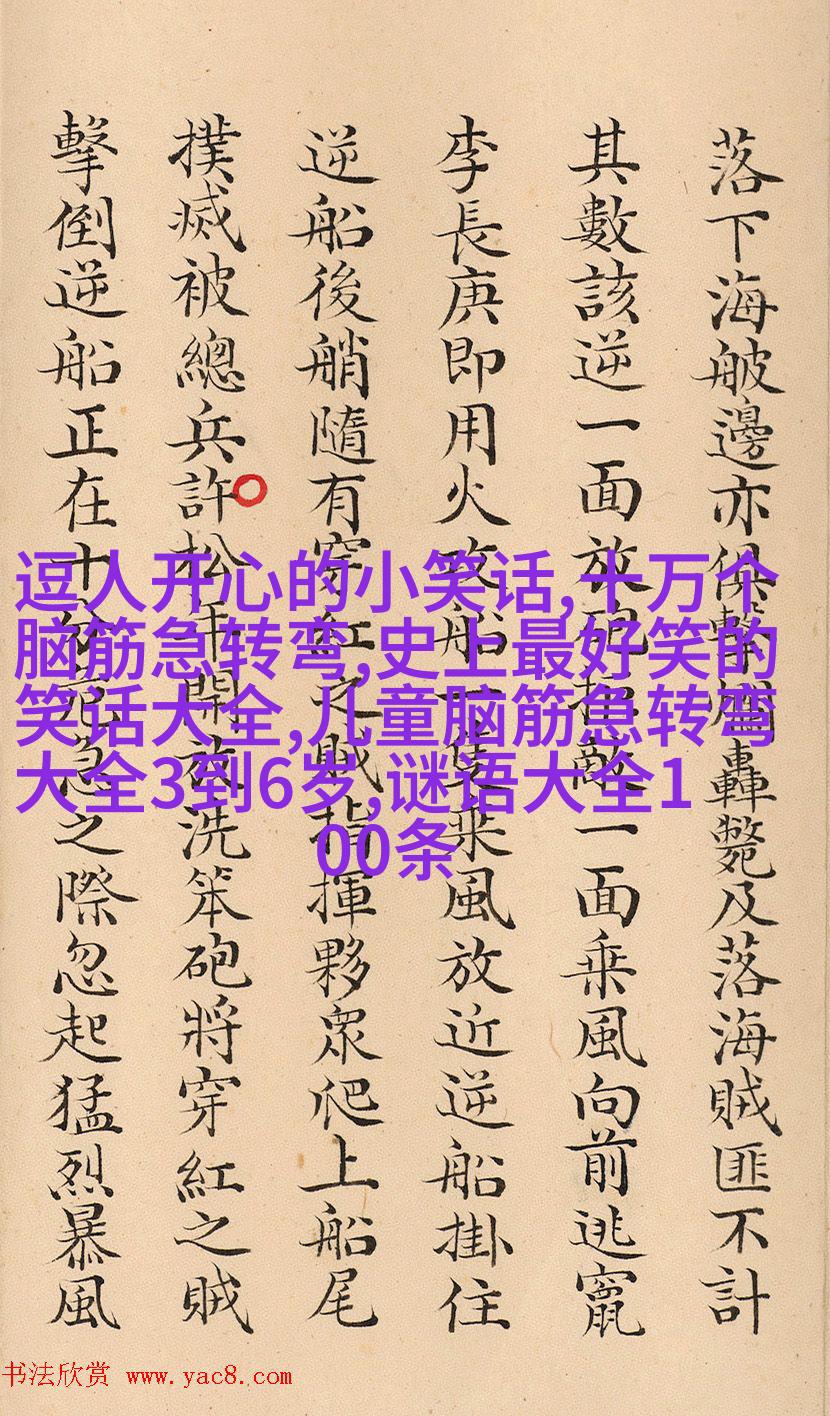 落下海邊亦俱擊爛轟斃及落海賊匪不計
其數該逆一面放砲拒敵一面乘風向前逃竄
李長庚即用火攻船一隻乘風放近逆船掛住
逆船後艄隨有穿紅之賊指揮夥眾爬上船尾
撲滅被總兵許松年開放洗笨砲將穿紅之賊
擊倒逆船正在十分危急之際忽起猛烈暴風
逗人开心的小笑话,十万个
脑筋急转弯,史上最好笑的
笑话大全,儿童脑筋急转弯
大全3到6岁,谜语大全1
00条
书法欣赏 www.yac8.com